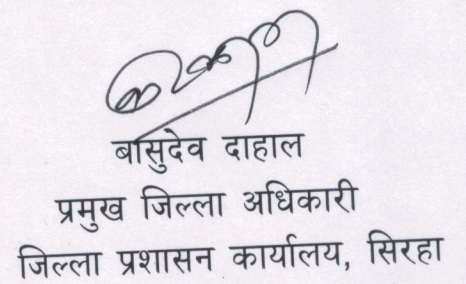 बासुदेव दाहाल
प्रमुख जिल्ला अधिकारी
जिल्ला प्रशासन कार्यालय, सिरहा